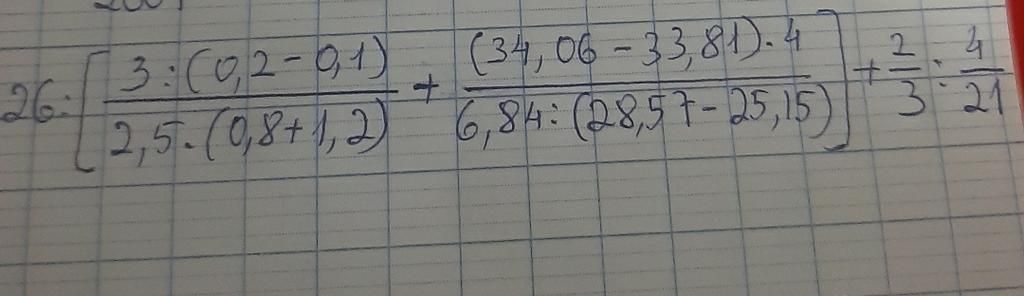 26:[ 3:(0,2-0,1) / 2,5.(0,8+1,2) + (34,06-33,81).4 / 6,84:(28,57-25,15) ] + 2/3 : 4/21